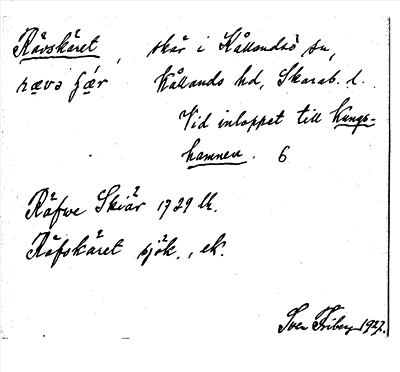 Rävskäret, skär i Kållandsö sn,
rævs ʃǽr Kållands hd, Skarab. l.
Vid inloppet till Kungs-
hamnen. 6
Räfwe Skiär 1729 lk.
Räfskäret sjök., ek.
Sven Friberg 1927.